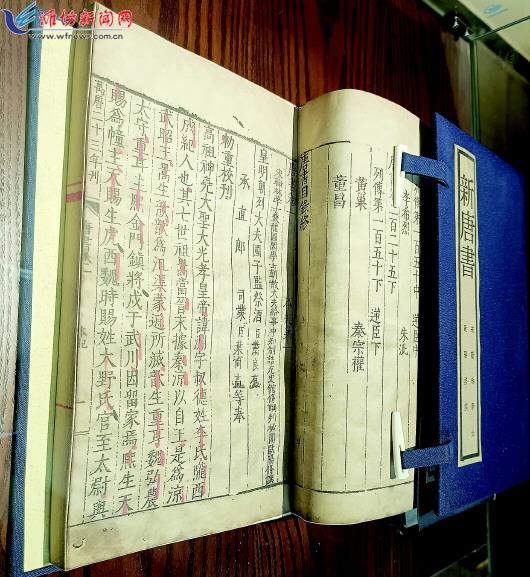 潍坊新闻网
www.wfnews.com.cn
新唐書
李希烈 朱泚
一百二十五下
列傳第一百五十下 逆臣下
黃巢 秦宗權
董昌
唐書目錄終
皇明朝列大夫國子監祭酒臣蕭良有
承直郎 司業臣葉向高等奉
勅重校刊
高祖神堯大聖大光孝皇帝諱淵字叔德姓李氏隴西
成紀人也其七世祖暠當晉末據秦涼以自王是爲涼
武昭王暠生歆歆爲沮渠蒙遜所滅歆生重耳魏弘農
太守重耳生熙金門鎮將戍于武川因留家焉熙生天
賜爲幢主天賜生虎西魏時賜姓大野氏官至太尉與
萬曆二十三年刊 唐書卷一